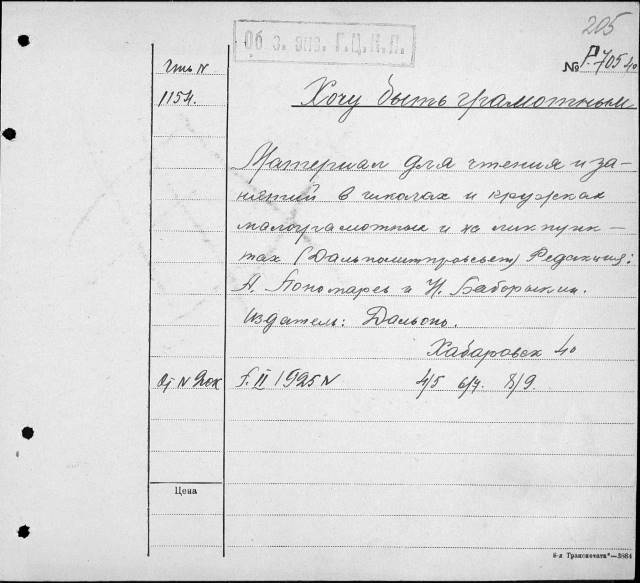 205
Об з. экз. Г.Ц.К.П.
№ Р.705 40
1154.
Хочу быть грамотным
Материал для чтения и за-
нятий в школах и кружках
малограмотных и на ликпунк-
тах (Дальполитпросвет) Редакция:
А. Пономарев и Н. Баборыкин.
Издатель: Дальоно.
Хабаровск 4о
II 1925 N 4/5 6/7. 8/9.
Цена
8-я Транспечати"—3884